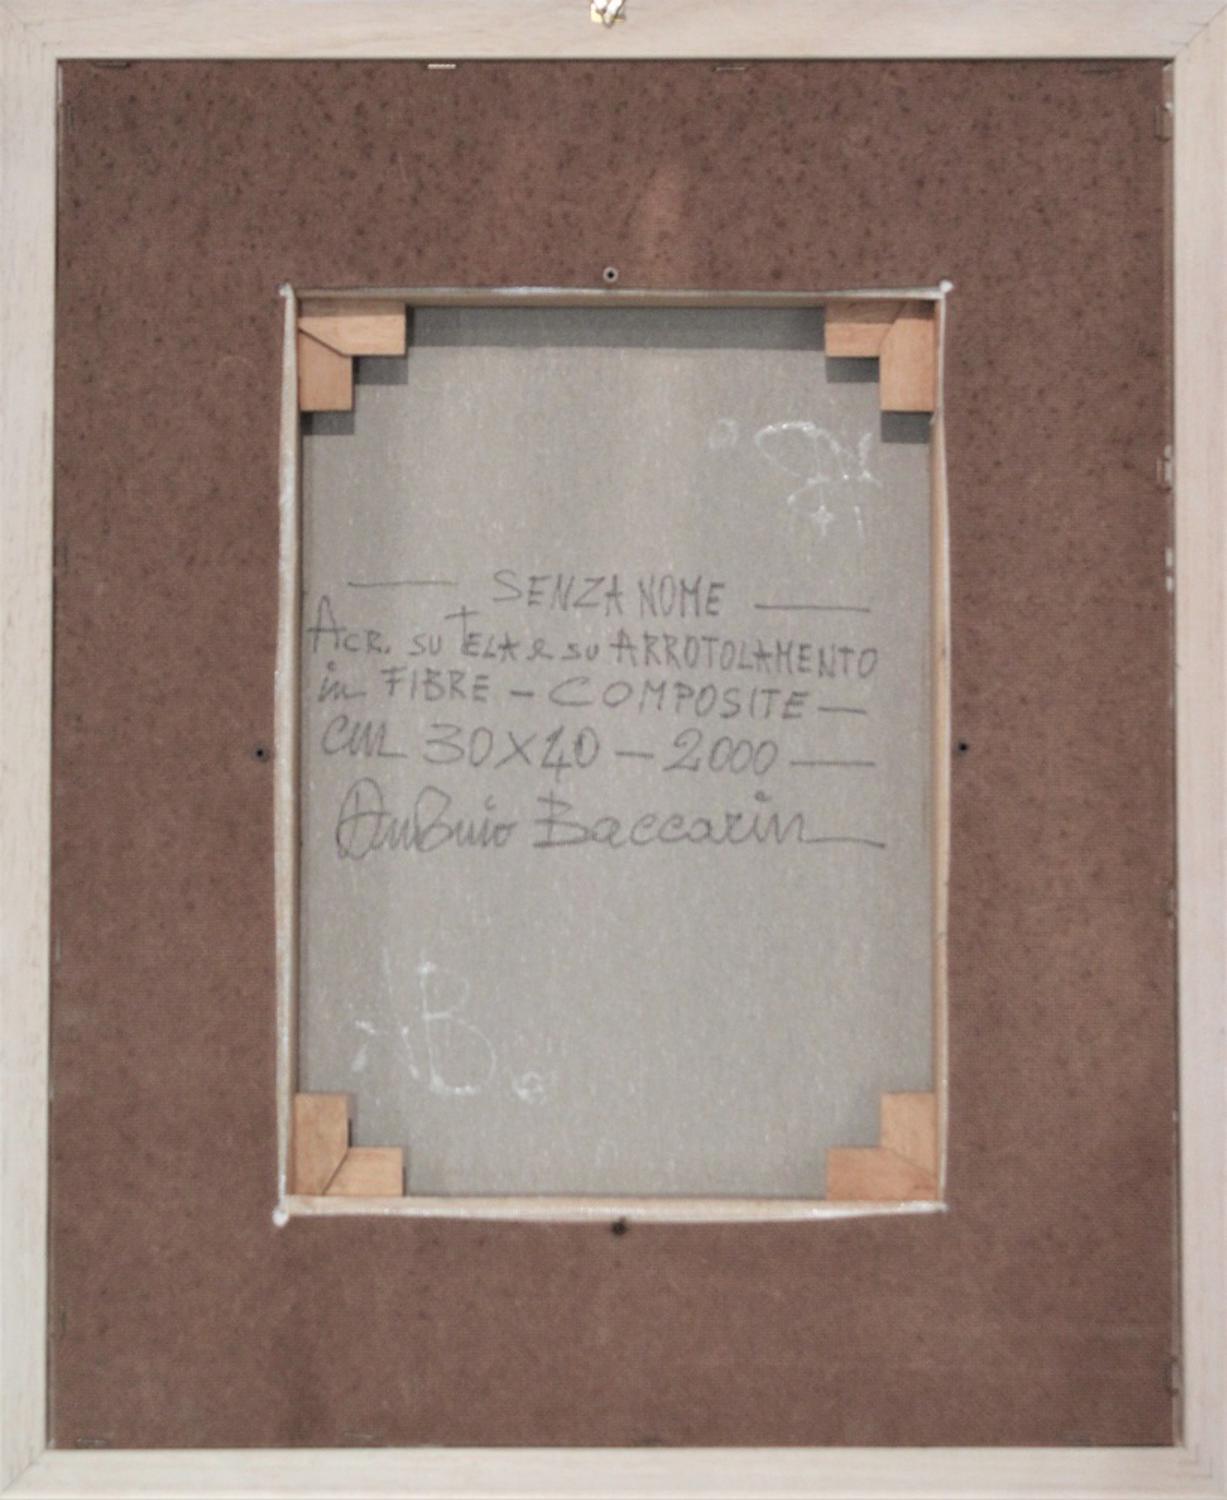 — SENZA NOME —
ACR. SU TELA e SU ARROTOLAMENTO
in FIBRE - COMPOSITE —
cm 30X40 — 2000 —
Antonio Baccarin